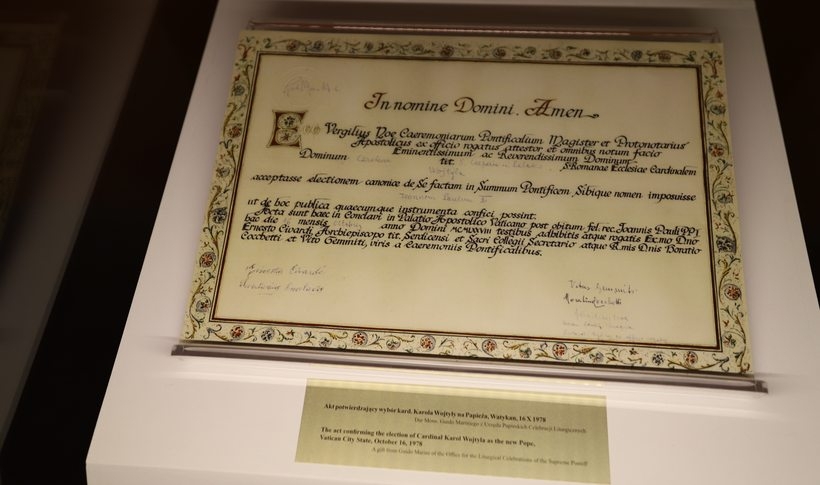 In nomine Domini. Amen
Ego Vergilius Noe Caeremoniarum Pontificalium Magister et Protonotarius
Apostolicus ex officio rogatus attestor et omnibus notum facio
Eminentissimum ac Reverendissimum Dominum
Dominum Carolum tit. S. Romanae Ecclesiae Cardinalem
Wojtyla
acceptasse electionem canonice de Se factam in Summum Pontificem, Sibique nomen imposuisse
Ioannem Paulum II
ut de hoc publica quaecumque instrumenta confici possint.
Acta sunt haec in Conclavi in Palatio Apostolico Vaticano post obitum fel. rec. Joannis Pauli PP I
hac die 16 mensis octobris anno Domini MCMLXXVIII testibus adhibitis atque rogatis Exc.mo Dno
Ernesto Civardi, Archiepiscopo tit. Serdicensi et Sacri Collegii Secretario atque R.mis Dnis Boratio
Cocchetti et Vito Gemmiti, viris a Caeremoniis Pontificalibus.
Ernesto Civardi
Vitus Gemmiti
Akt potwierdzający wybór kard. Karola Wojtyły na Papieża, Watykan, 16 X 1978
Dar Mons. Guido Mariniego z Urzędu Papieskich Celebracji Liturgicznych
The act confirming the election of Cardinal Karol Wojtyla as the new Pope,
Vatican City State, October 16, 1978
A gift from Guido Marini of the Office for the Liturgical Celebrations of the Supreme Pontiff